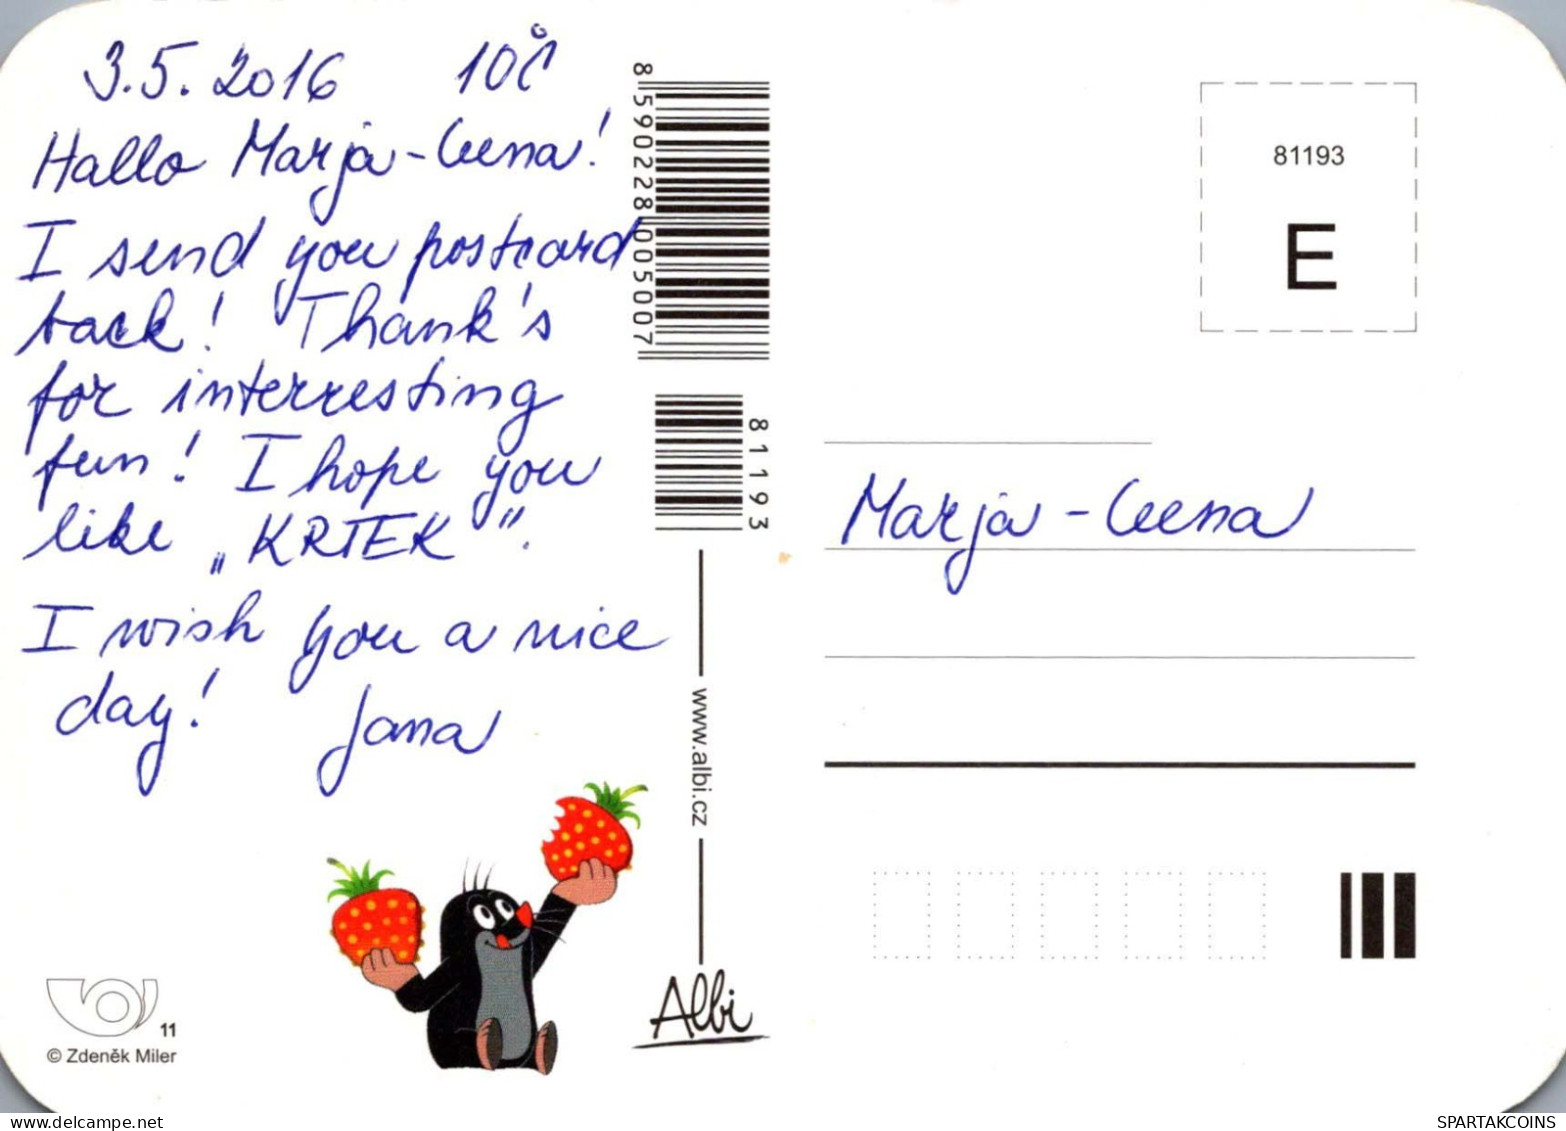 3.5.2016 10°C
Hallo Marja-Leena!
I send you postcard
back! Thank's
for interresting
fun! I hope you
like „KRTEK".
I wish you a nice
day! Jana
8 590228 005007
81193
www.albi.cz
Albi
11
© Zdeněk Miler
81193
E
Marja-Leena
SPARTAKCOINS